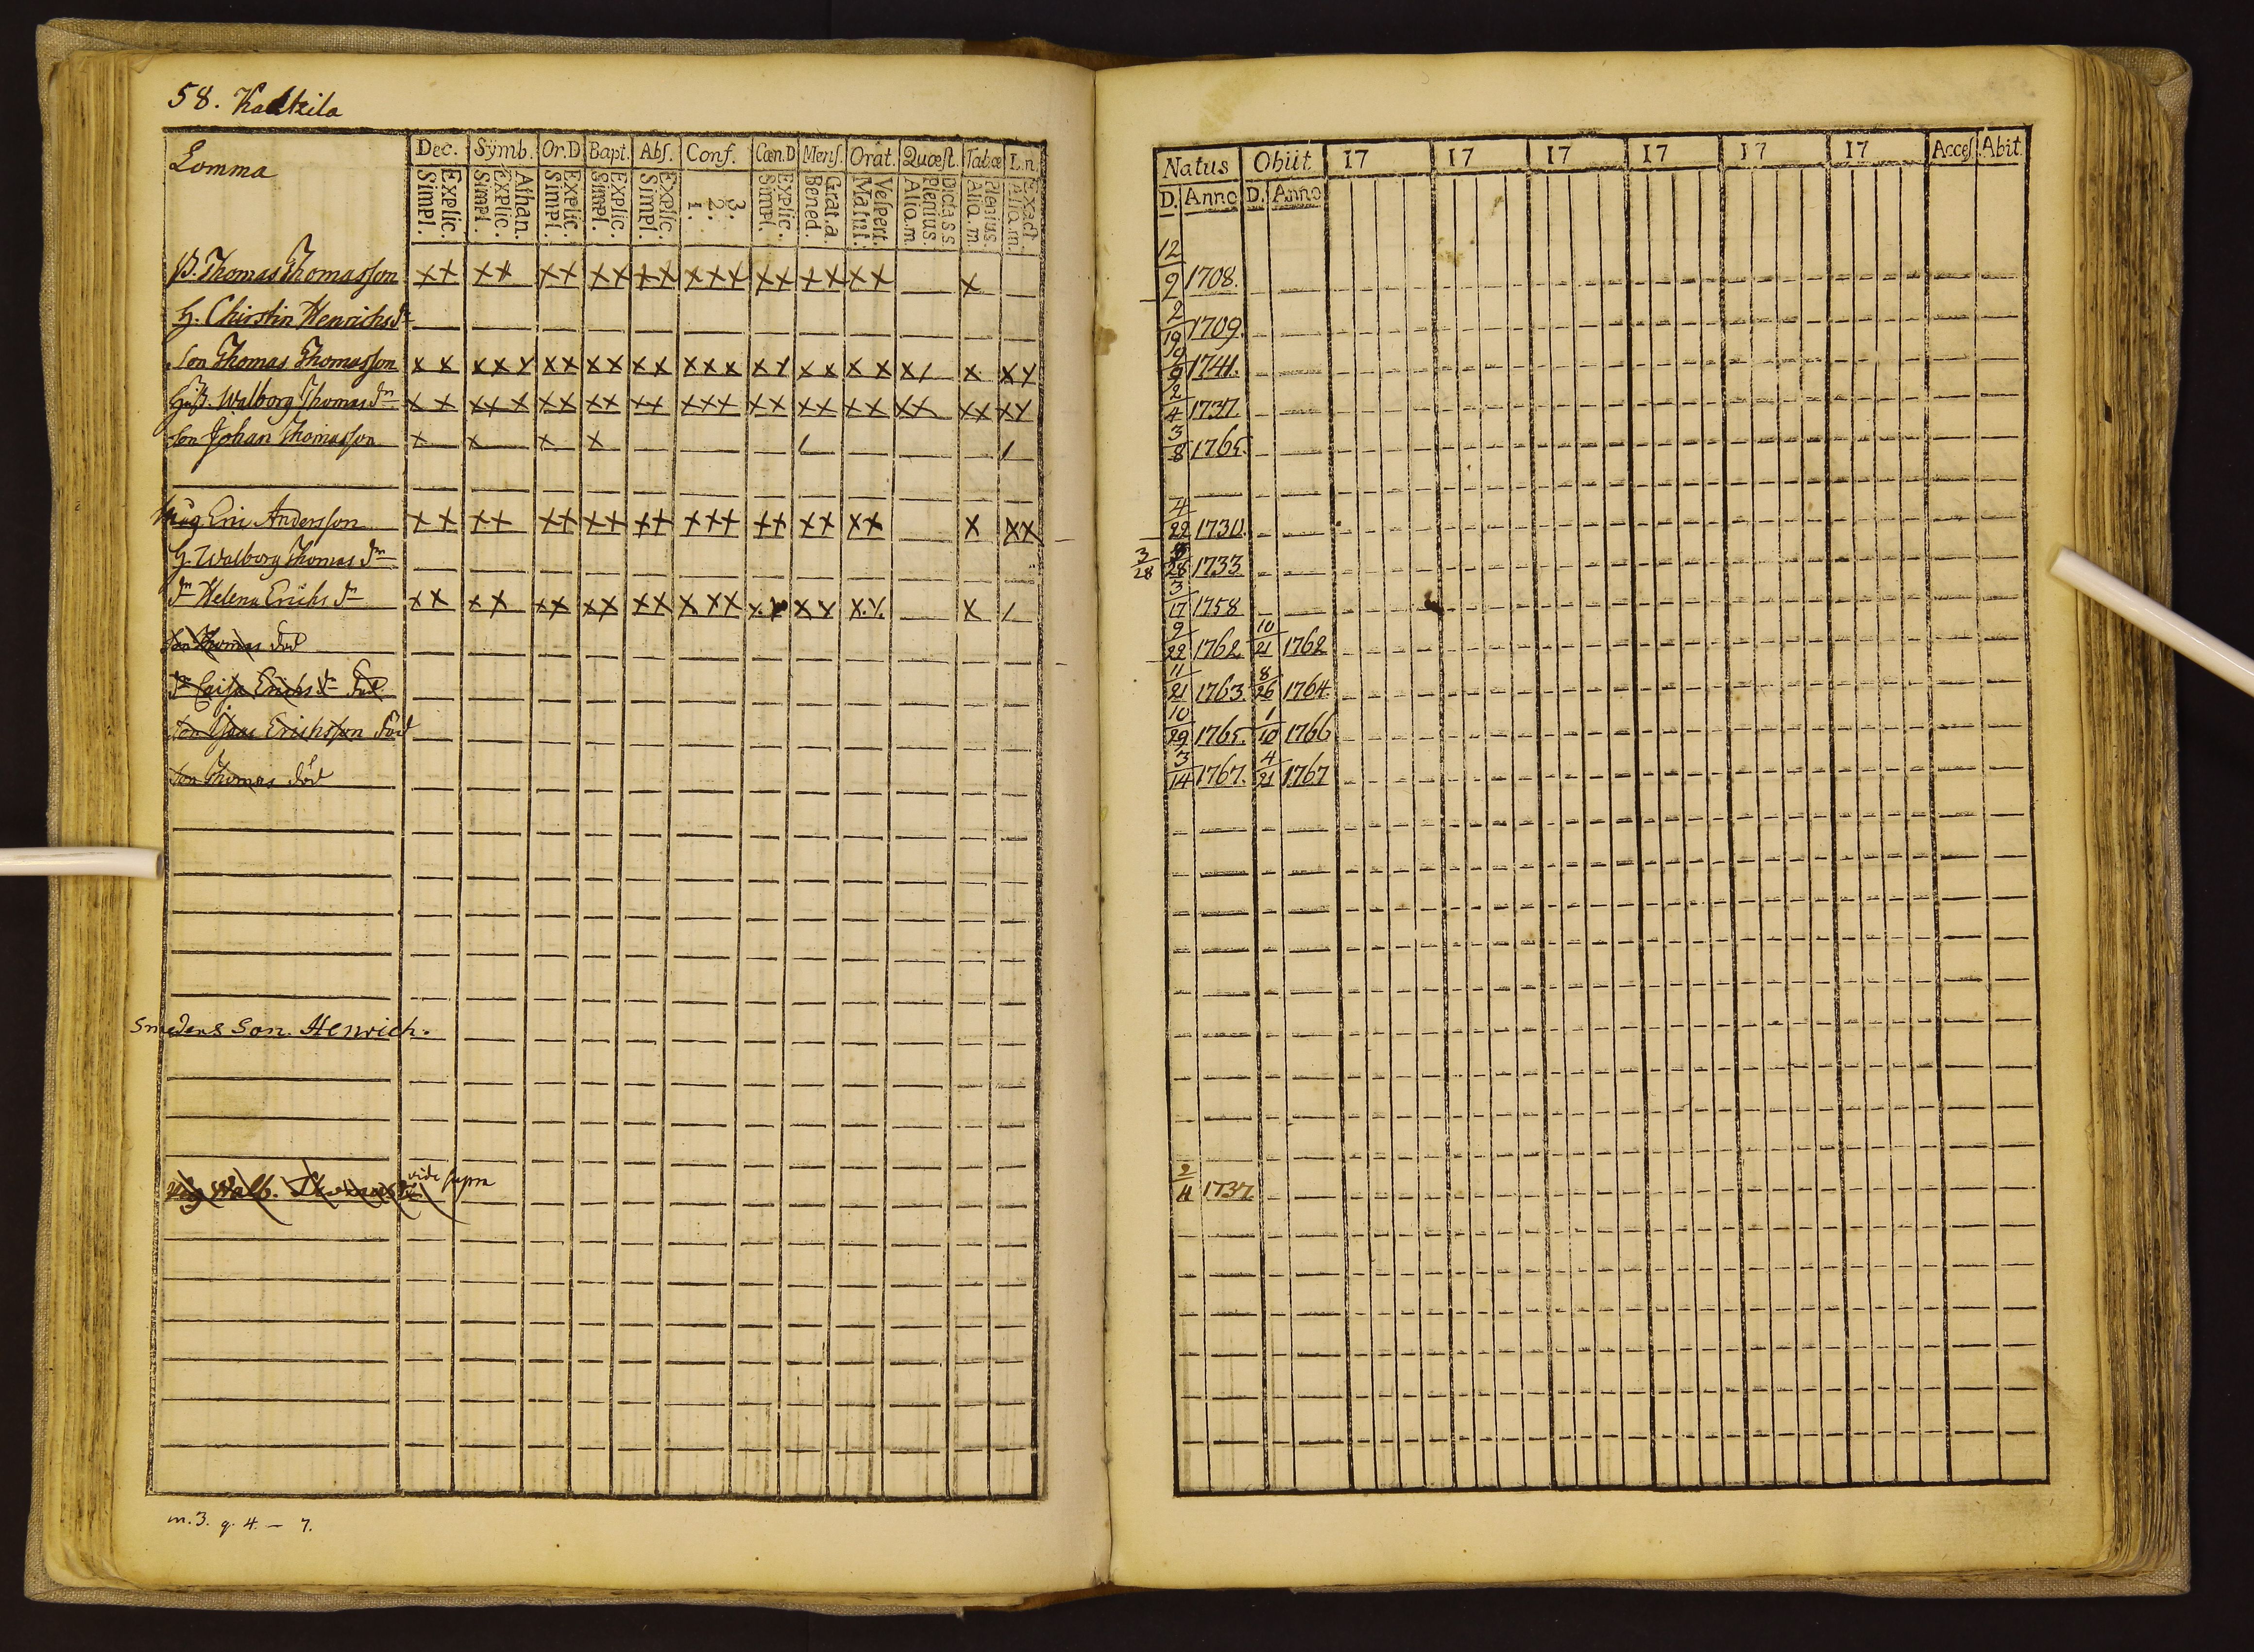 58. Kaltzila
Lomma
Dec. Sÿmb. Or.D Bapt. Abſ. Conf. Cæn.D Menſ. Orat. Quæſt. Tabæ L.n.
Explic. Simpl. Athan. Explic. Simpl. Explic. Simpl. Explic. Simpl. Explic. Simpl. 3. 2. 1. Explic. Simpl. Grat.a. Bened. Veſpert. Matut. Dicta s.s. Plenius. Aliq.m. Plenius. Aliq.m. Exact. Aliq.m.
B. Thomas Thomasſon xx xx xx xx xx xxx xx xx xx x
H. Chirstin Henrichs dr
Son Thomas Thomasſon x x xxx xx xx xx xxx xx xx x x x/ x xx
Hust. Walborg Thomas dr x x xx x xx xx xx xxx xx xx xx xx xx xx
Son Johan Thomasſon x x x x / /
Måg Eric Andersſon xx xx xx xx xx xxx xx xx xx x xx
H. Walborg Thomas dr
dr Helena Erichs dr xx xx xx xx xx xxx x.x xx x.x. x /
Son Thomas död
dr Caisa Erichs dr död
Son Isaac Erichsſon död
Son Thomas död
Smedens Son Henrich.
Pig Walb. Thomas dr vide supra
m. 3. q. 4. — 7.
Natus Obiit 17 17 17 17 17 17 Acceſ. Abit.
D. Anno D. Anno
12/2 1708.
2/19 1709.
9/9 1741.
2/4 1737
3/8 1765.
4/22 1730.
3/28 28 1733
3/17 1758
9/22 1762 10/21 1762
11/21 1763 8/26 1764
10/29 1765. 1/10 1766
3/14 1767. 4/21 1767
2/4 1737